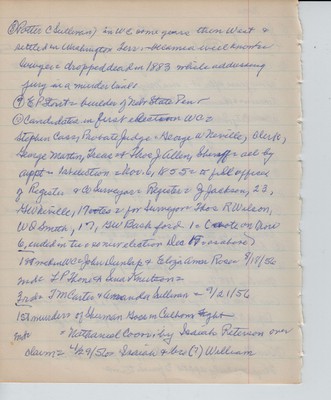 (Potter C Sullivan) in W.C. some years then West &
settled in Washington Terr. - became a well known
lawyer & dropped dead in 1883 while addressing
jury in a murder trial
E P First = builder of Neb State Pen
Candidates in first election W.C.
Stephen Cass, Probate Judge = George W Neville, Clerk,
George Martin, Treas & Thos J Allen, Sheriff = all by
appt = 1st election = Nov. 6, 1855 = to fill offices
of Register & Surveyor = Register = J Jackson, 23,
G W Neville, 17 votes & for Surveyor Thos R Wilson,
W D Smith, 17, G W Beckford 1 = on Dist
6, ended in tie & so new election Dec
1st mar W C = John Dunlap & Eliza Ann Ross 8/18/56
mdc L P Thon & Sena Knutson =
3rd = T M Carter & Alexander Sullivan = 9/21/56
1st murders of Human Race in Calhoun
mdr " Nathaniel Coon by Isaiah Peterson over
claim = 4/29/56 = Isaiah & bro (?) William